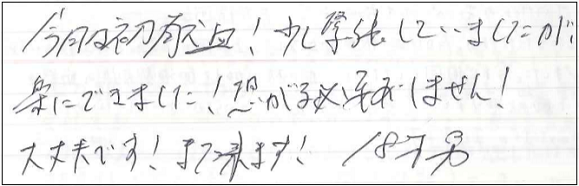 今日は初献血！少し緊張していましたが
楽にできました！恐がる必要ありません！
大丈夫です！また来ます！ 18才男